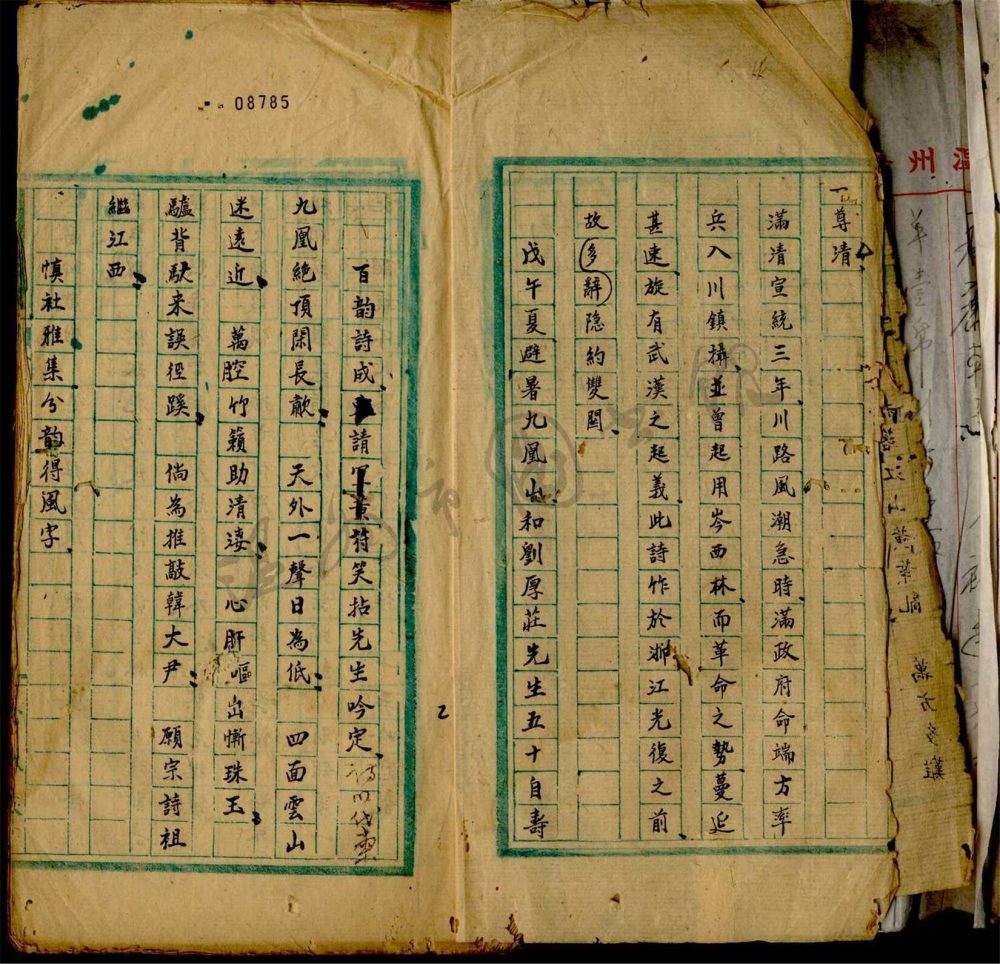 温州
尊清
滿清宣統三年川路風潮急時滿政府命端方率
兵入川鎮攝並曾起用岑西林而革命之勢蔓延
甚速旋有武漢之起義此詩作於浙江光復之前
故多辭隐約雙関
戊午夏避暑九凰山和劉厚莊先生五十自壽
百韵詩成請笑拈先生吟定
九凰絶頂閑長歗 天外一聲日為低 四面雲山
迷遠近 萬腔竹籟助清淒 心肝嘔出慚珠玉
驢背馱来誤徑蹊 倘為推敲韓大尹 願宗詩祖
繼江西
慎社雅集分韵得風字
08785
2